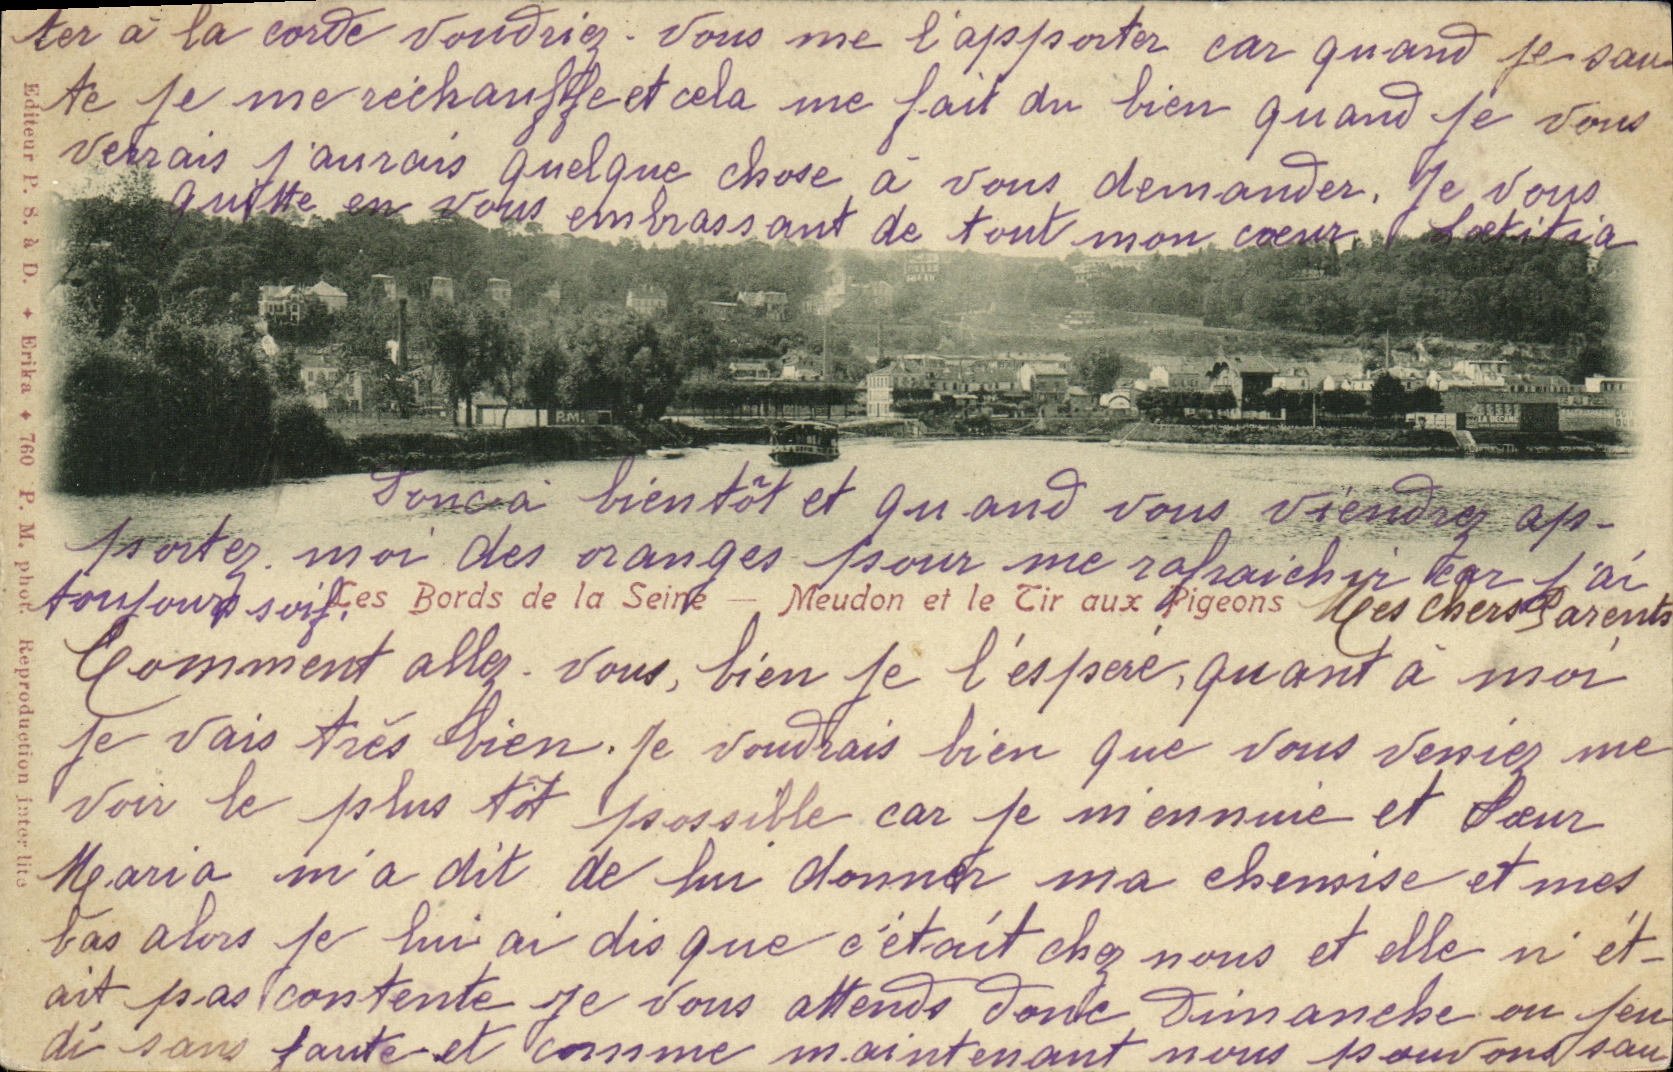 Mes chers Parents
Comment allez-vous, bien je l'espère, quant à moi
je vais très bien. Je voudrais bien que vous veniez me
voir le plus tôt possible car je m'ennuie et Sœur
Maria m'a dit de lui donner ma chemise et mes
bas alors je lui ai dis que c'était chez nous et elle n'ét-
ait pas contente Je vous attends donc Dimanche ou jeu
di sans faute et comme maintenant nous pouvons sau
ter à la corde voudriez-vous me l'apporter car quand je sau
te je me réchauffe et cela me fait du bien quand je vous
verrais j'aurais quelque chose à vous demander. Je vous
quitte en vous embrassant de tout mon cœur Lœtitia
Donc à bientôt et quand vous viendrez ap-
portez-moi des oranges pour me rafraichir car j'ai
toujours soif.
Les Bords de la Seine — Meudon et le Tir aux Pigeons
Editeur P. S. à D. ✦ Erika ✦ 760 P. M. phot. Reproduction interdite
P.M.